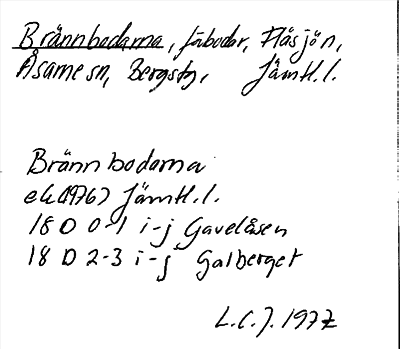 Brännbodarna, fäbodar, Flåsjön,
Åsarne sn, Bergs tg, Jämtl. l.
Brännbodarna
ek (1976) Jämtl. l.
18 D 0-1 i-j Gavelåsen
18 D 2-3 i-j Galberget
L.C.J. 1977